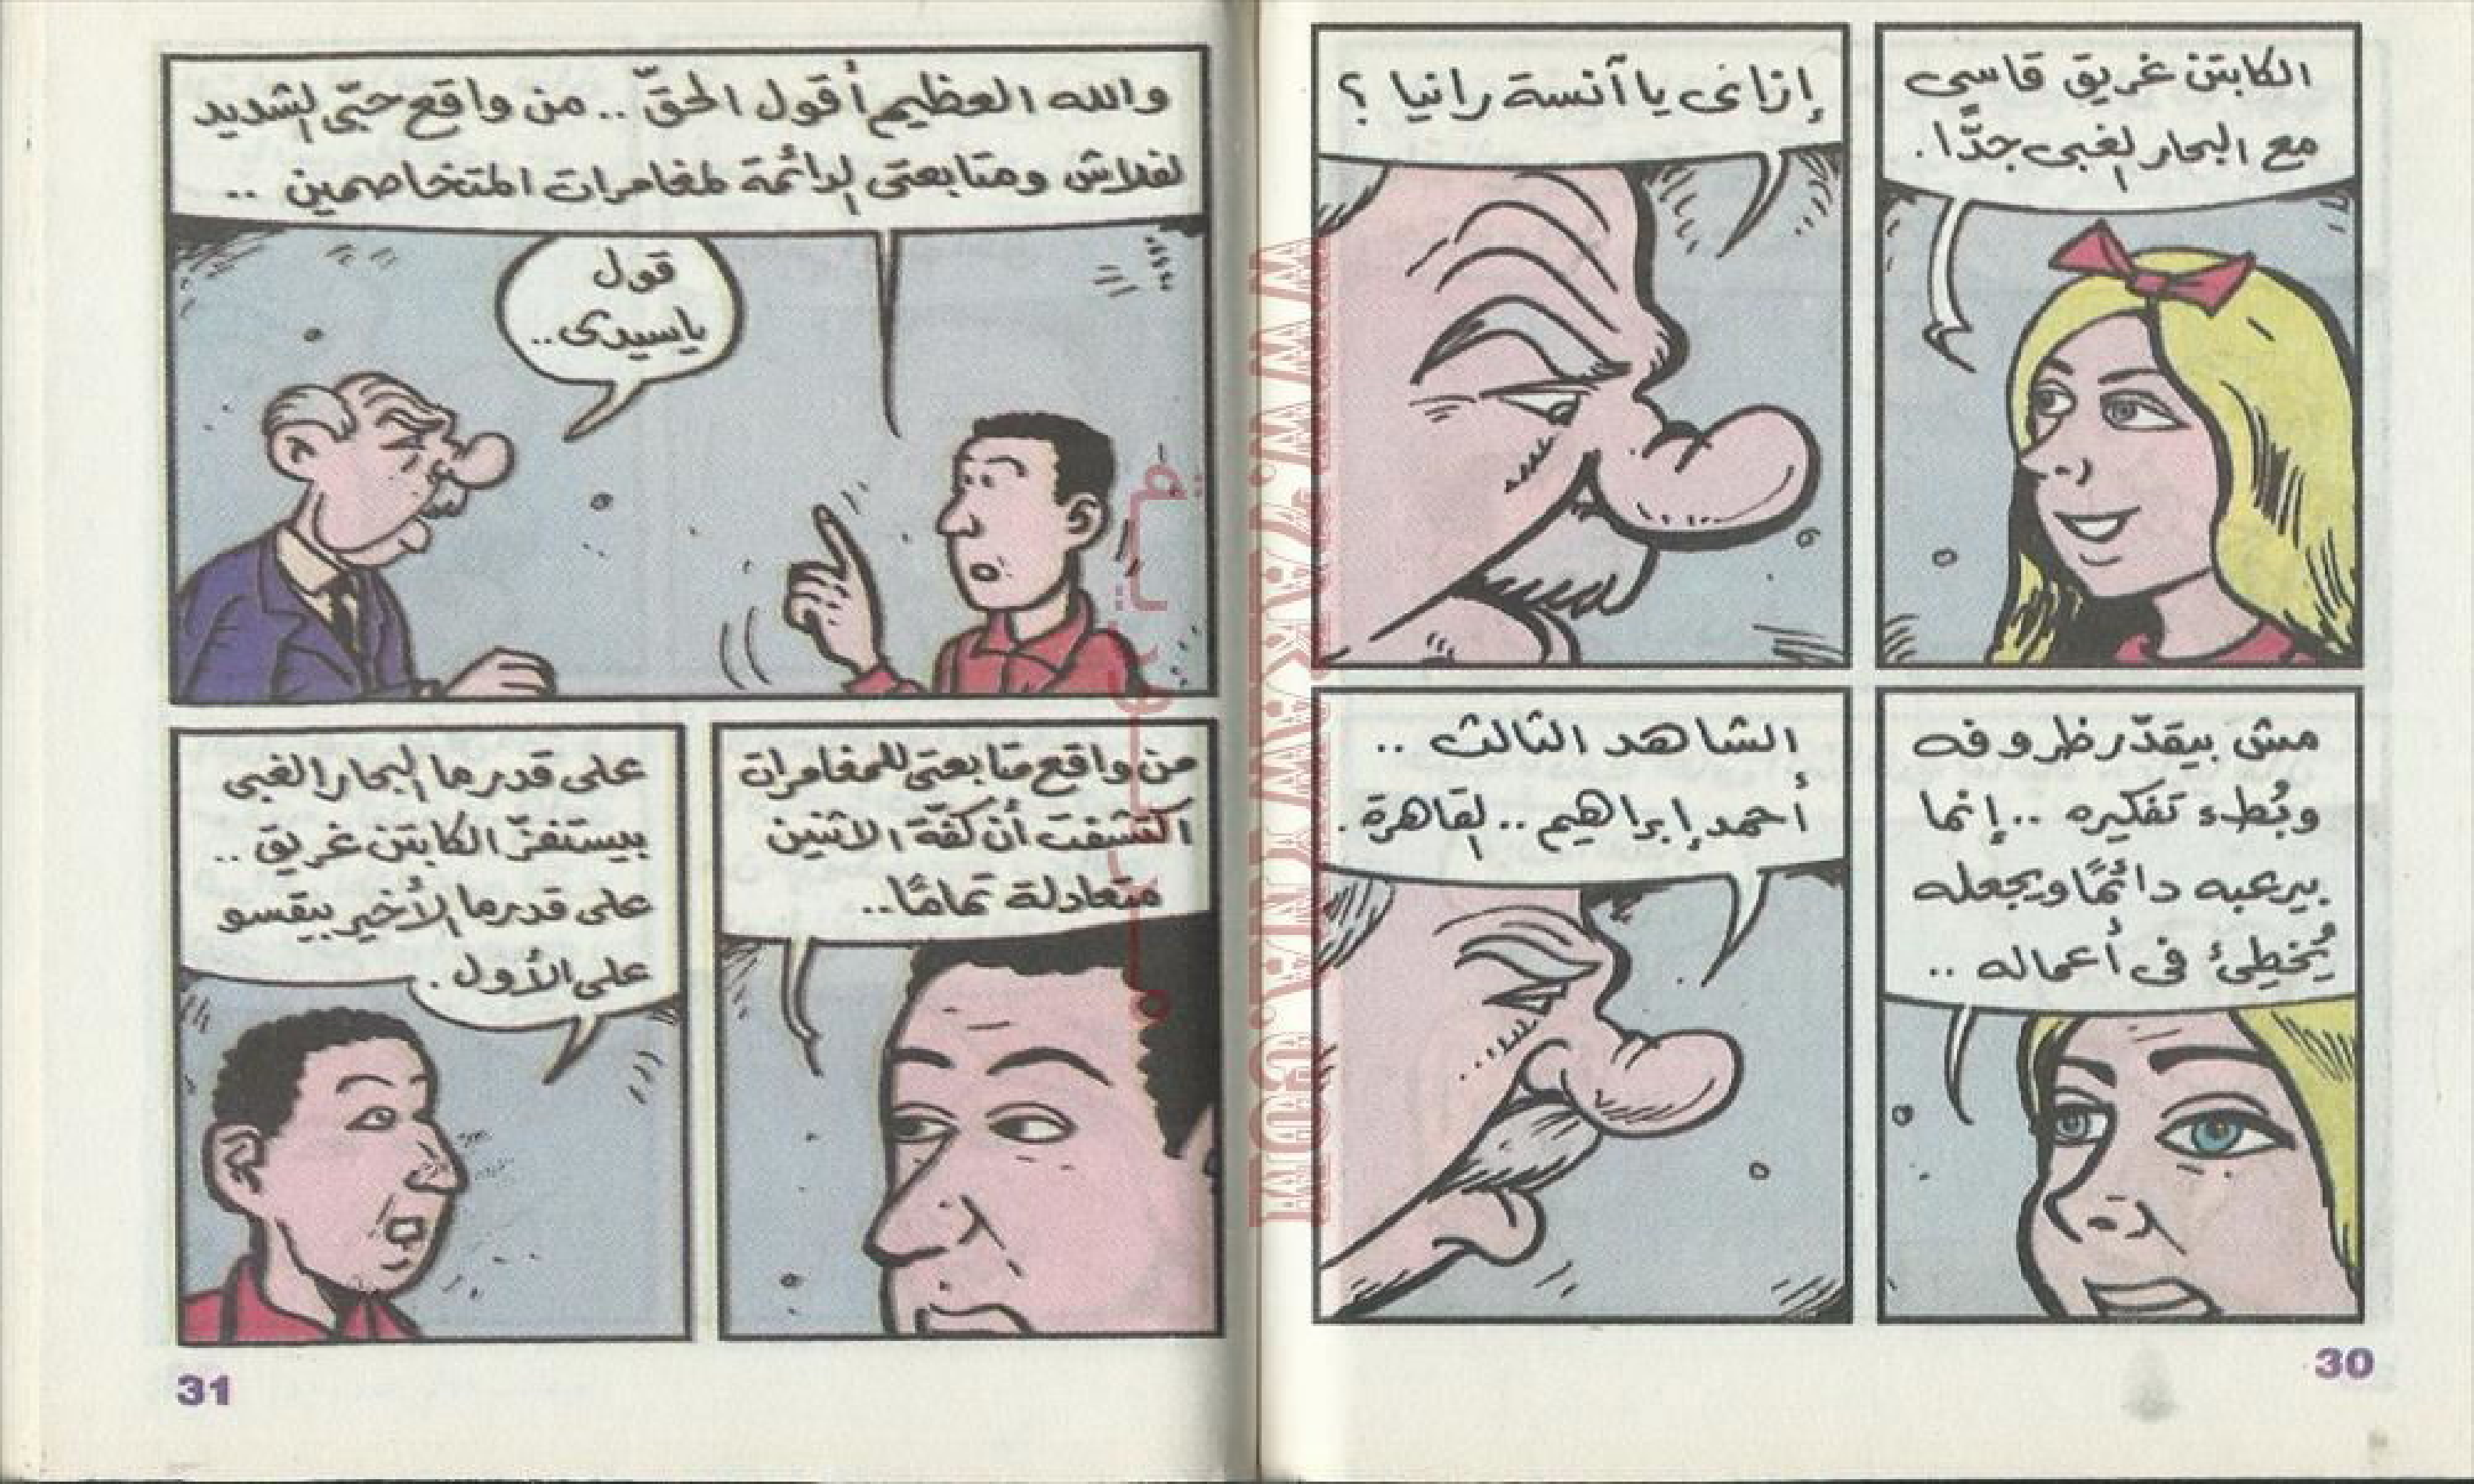 الكابتن غريق قاسى
مع البحار الغبى جدًّا.
إزاى يا آنسة رانيا ؟
مش بيقدّر ظروفه
وبُطء تفكيره .. إنما
بيرعبه دائمًا ويجعله
يُخطِئ فى أعماله ..
الشاهد الثالث ..
أحمد إبراهيم .. القاهرة .
30
والله العظيم أقول الحقّ .. من واقع حبّى الشديد
لفلاش ومتابعتى الدائمة لمغامرات المتخاصمين ..
قول
ياسيدى ..
من واقع متابعتى للمغامرات
اكتشفت أن كفّة الاثنين
متعادلة تمامًا..
على قدر ما البحار الغبى
بيستفزّ الكابتن غريق ..
على قدر ما الأخير بيقسو
على الأول .
31
WWW.ARABCOMICS.NET